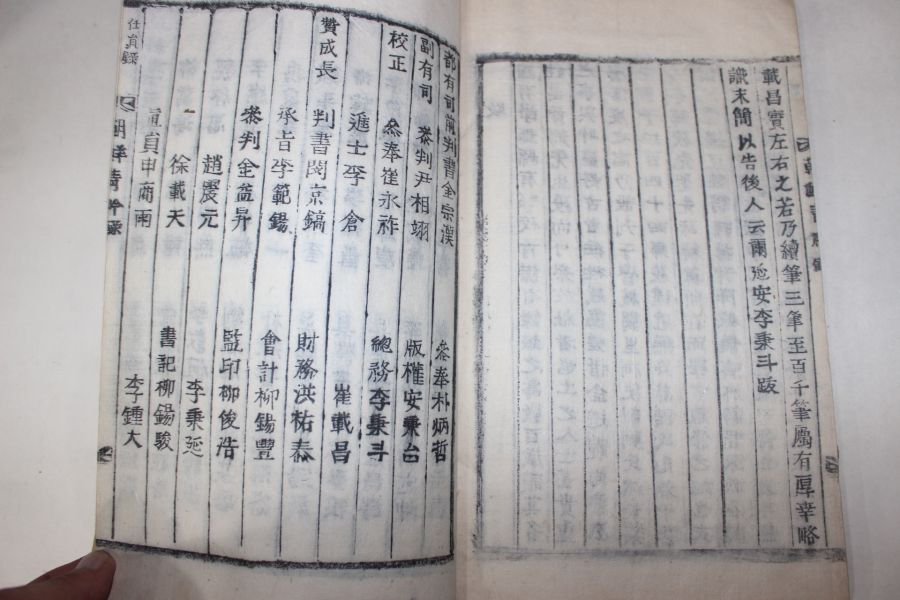 載昌實左右之若乃續筆三筆至百千筆屬有厚幸略
識末簡以告後人云爾延安李秉斗跋
都有司前判書金宗漢
參奉朴炳哲
副有司 參判尹相翊
版權安秉台
校正 參奉崔永祚
總務李秉斗
進士李倉
崔載昌
贊成長 判書閔京鎬
財務洪祐泰
承旨李範錫
會計柳錫豐
參判金益昇
監印柳俊浩
趙震元
李秉延
徐載天
書記柳錫駿
議員申商雨
李鍾大
任員錄